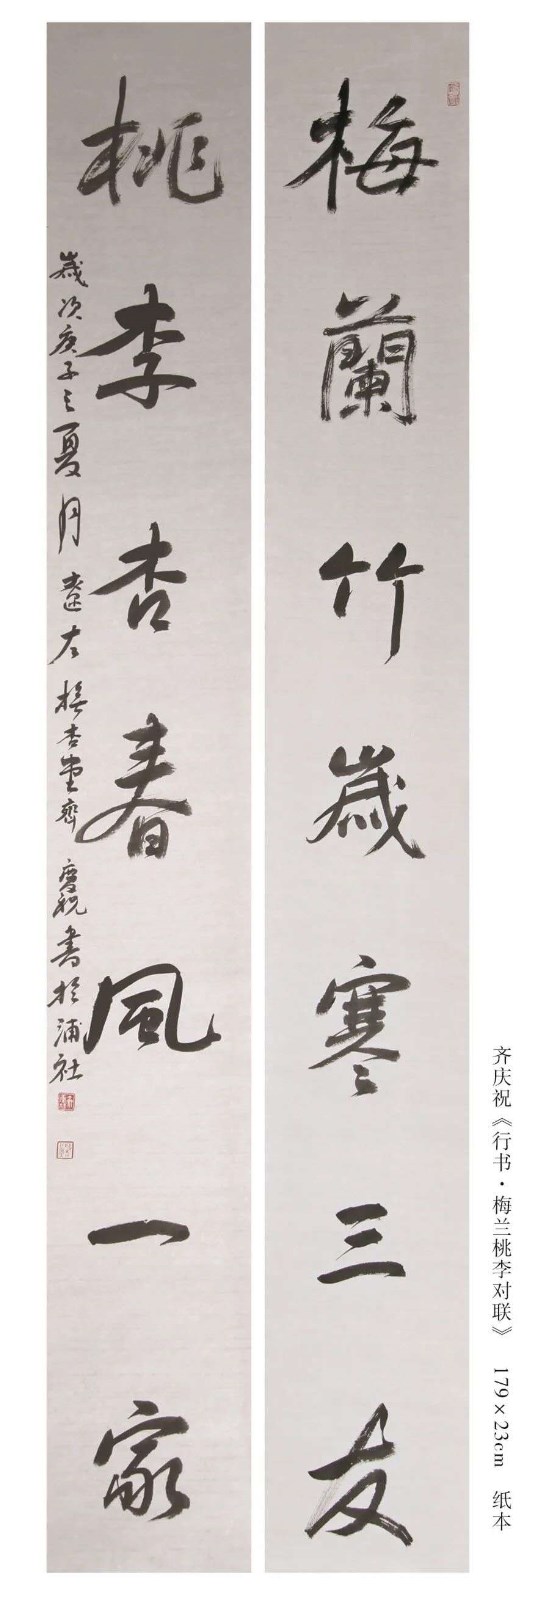 梅蘭竹歲寒三友
桃李杏春風一家
歲次庚子之夏月遼左横杏堂齊慶祝書於浦社
齐庆祝《行书·梅兰桃李对联》 179×23cm 纸本